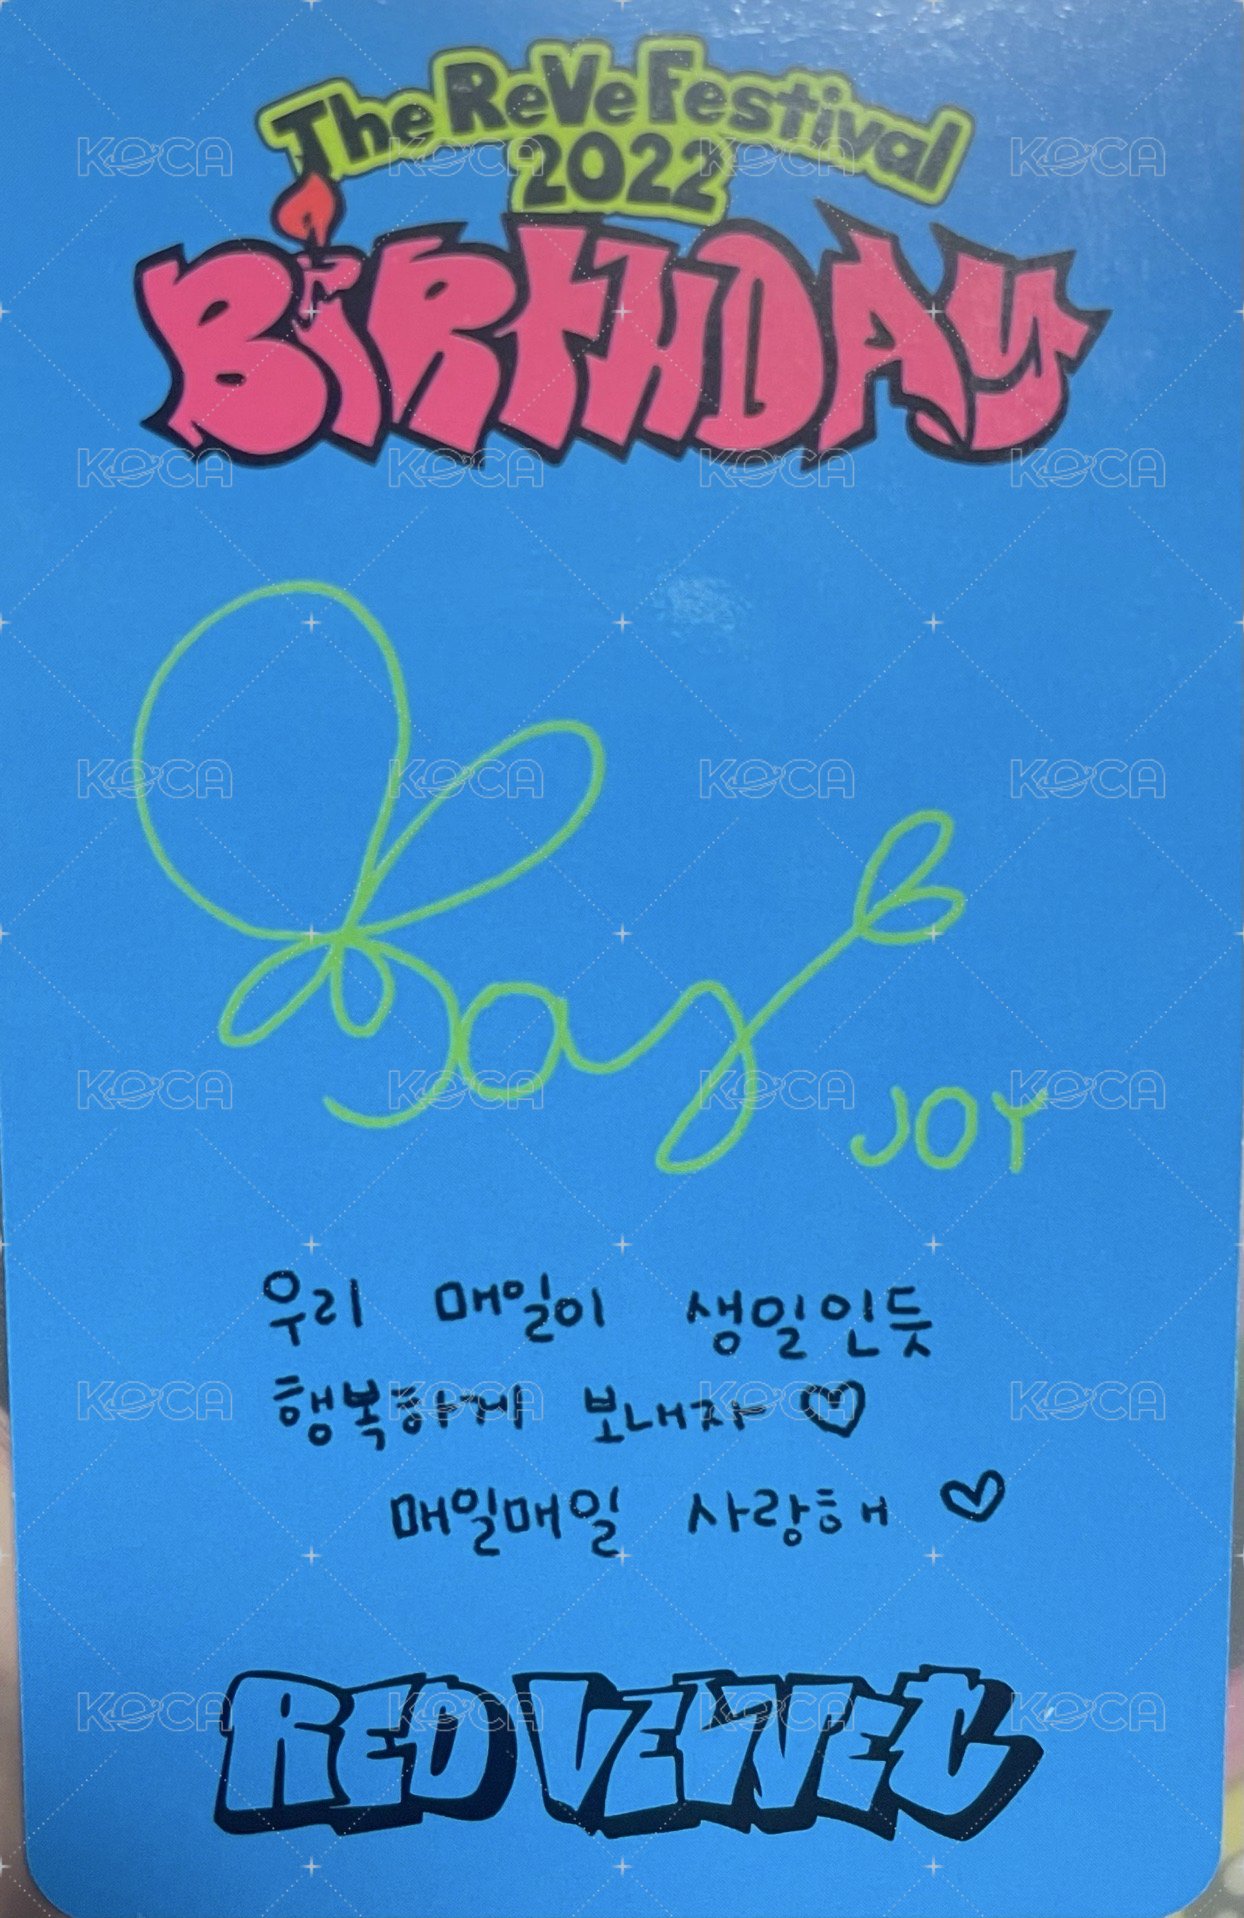 The ReVe Festival
2022
BiRTHDAY
Joy
JOY
우리 매일이 생일인듯
행복하게 보내자♡
매일매일 사랑해 ♡
RED VELVET
KOCA KOCA KOCA KOCA
KOCA KOCA KOCA KOCA
KOCA KOCA KOCA KOCA
KOCA KOCA KOCA KOCA
KOCA KOCA KOCA KOCA
KOCA KOCA KOCA KOCA